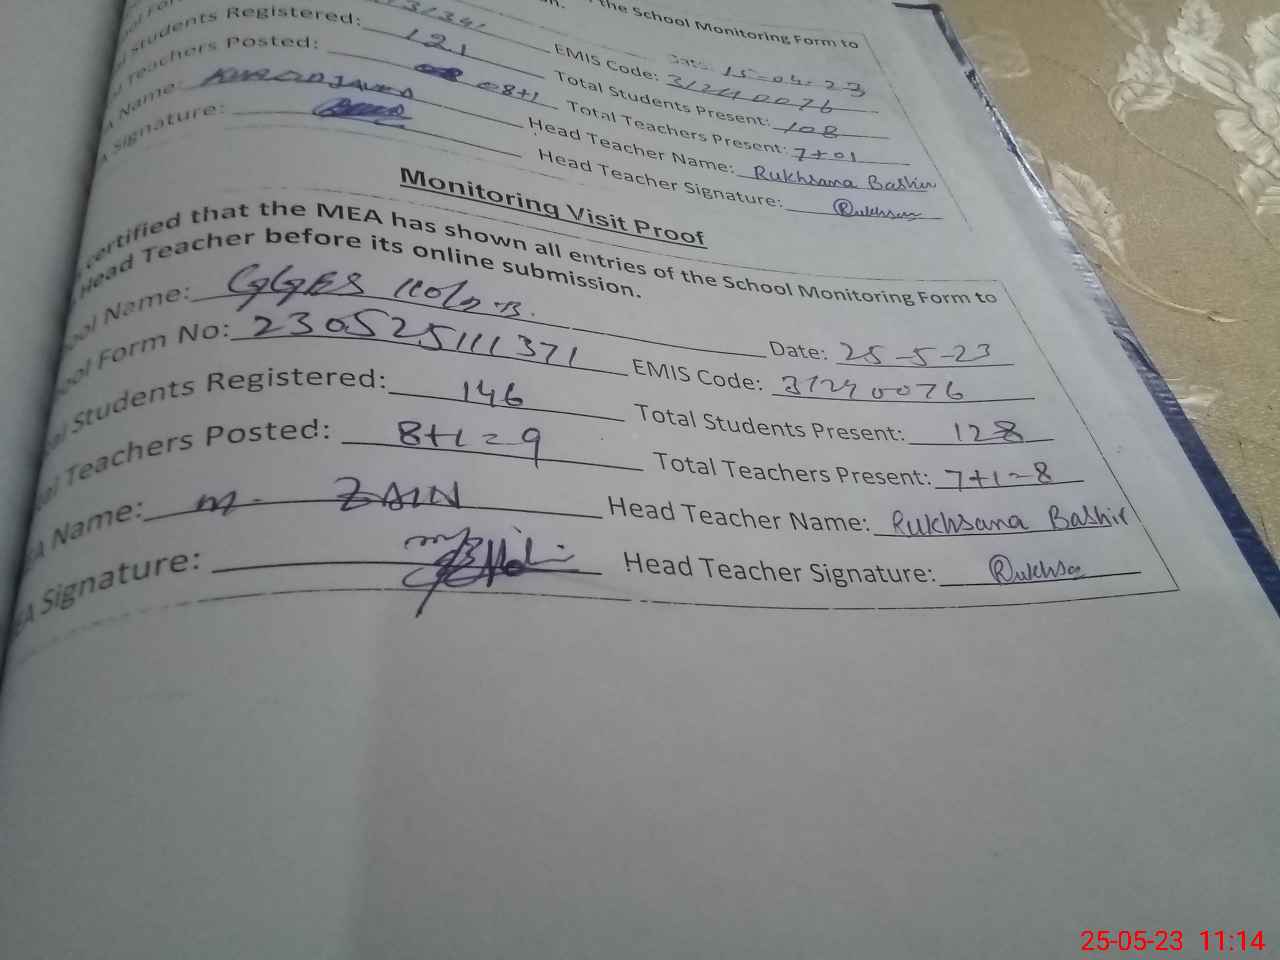 the School Monitoring Form to
Date: 15-04-23
Students Registered: 121 EMIS Code: 31240076
Teachers Posted: 08+1 Total Students Present: 108
Name: Total Teachers Present: 7+01
Signature: Head Teacher Name: Rukhsana Bashir
Head Teacher Signature: Rukhsana
Monitoring Visit Proof
certified that the MEA has shown all entries of the School Monitoring Form to
Head Teacher before its online submission.
Name: GGES Date: 25-5-23
Form No: 230525111371 EMIS Code: 31240076
Students Registered: 146 Total Students Present: 128
Teachers Posted: 8+1=9 Total Teachers Present: 7+1=8
Name: M. ZAIN Head Teacher Name: Rukhsana Bashir
Signature: Head Teacher Signature: Rukhsana
25-05-23 11:14